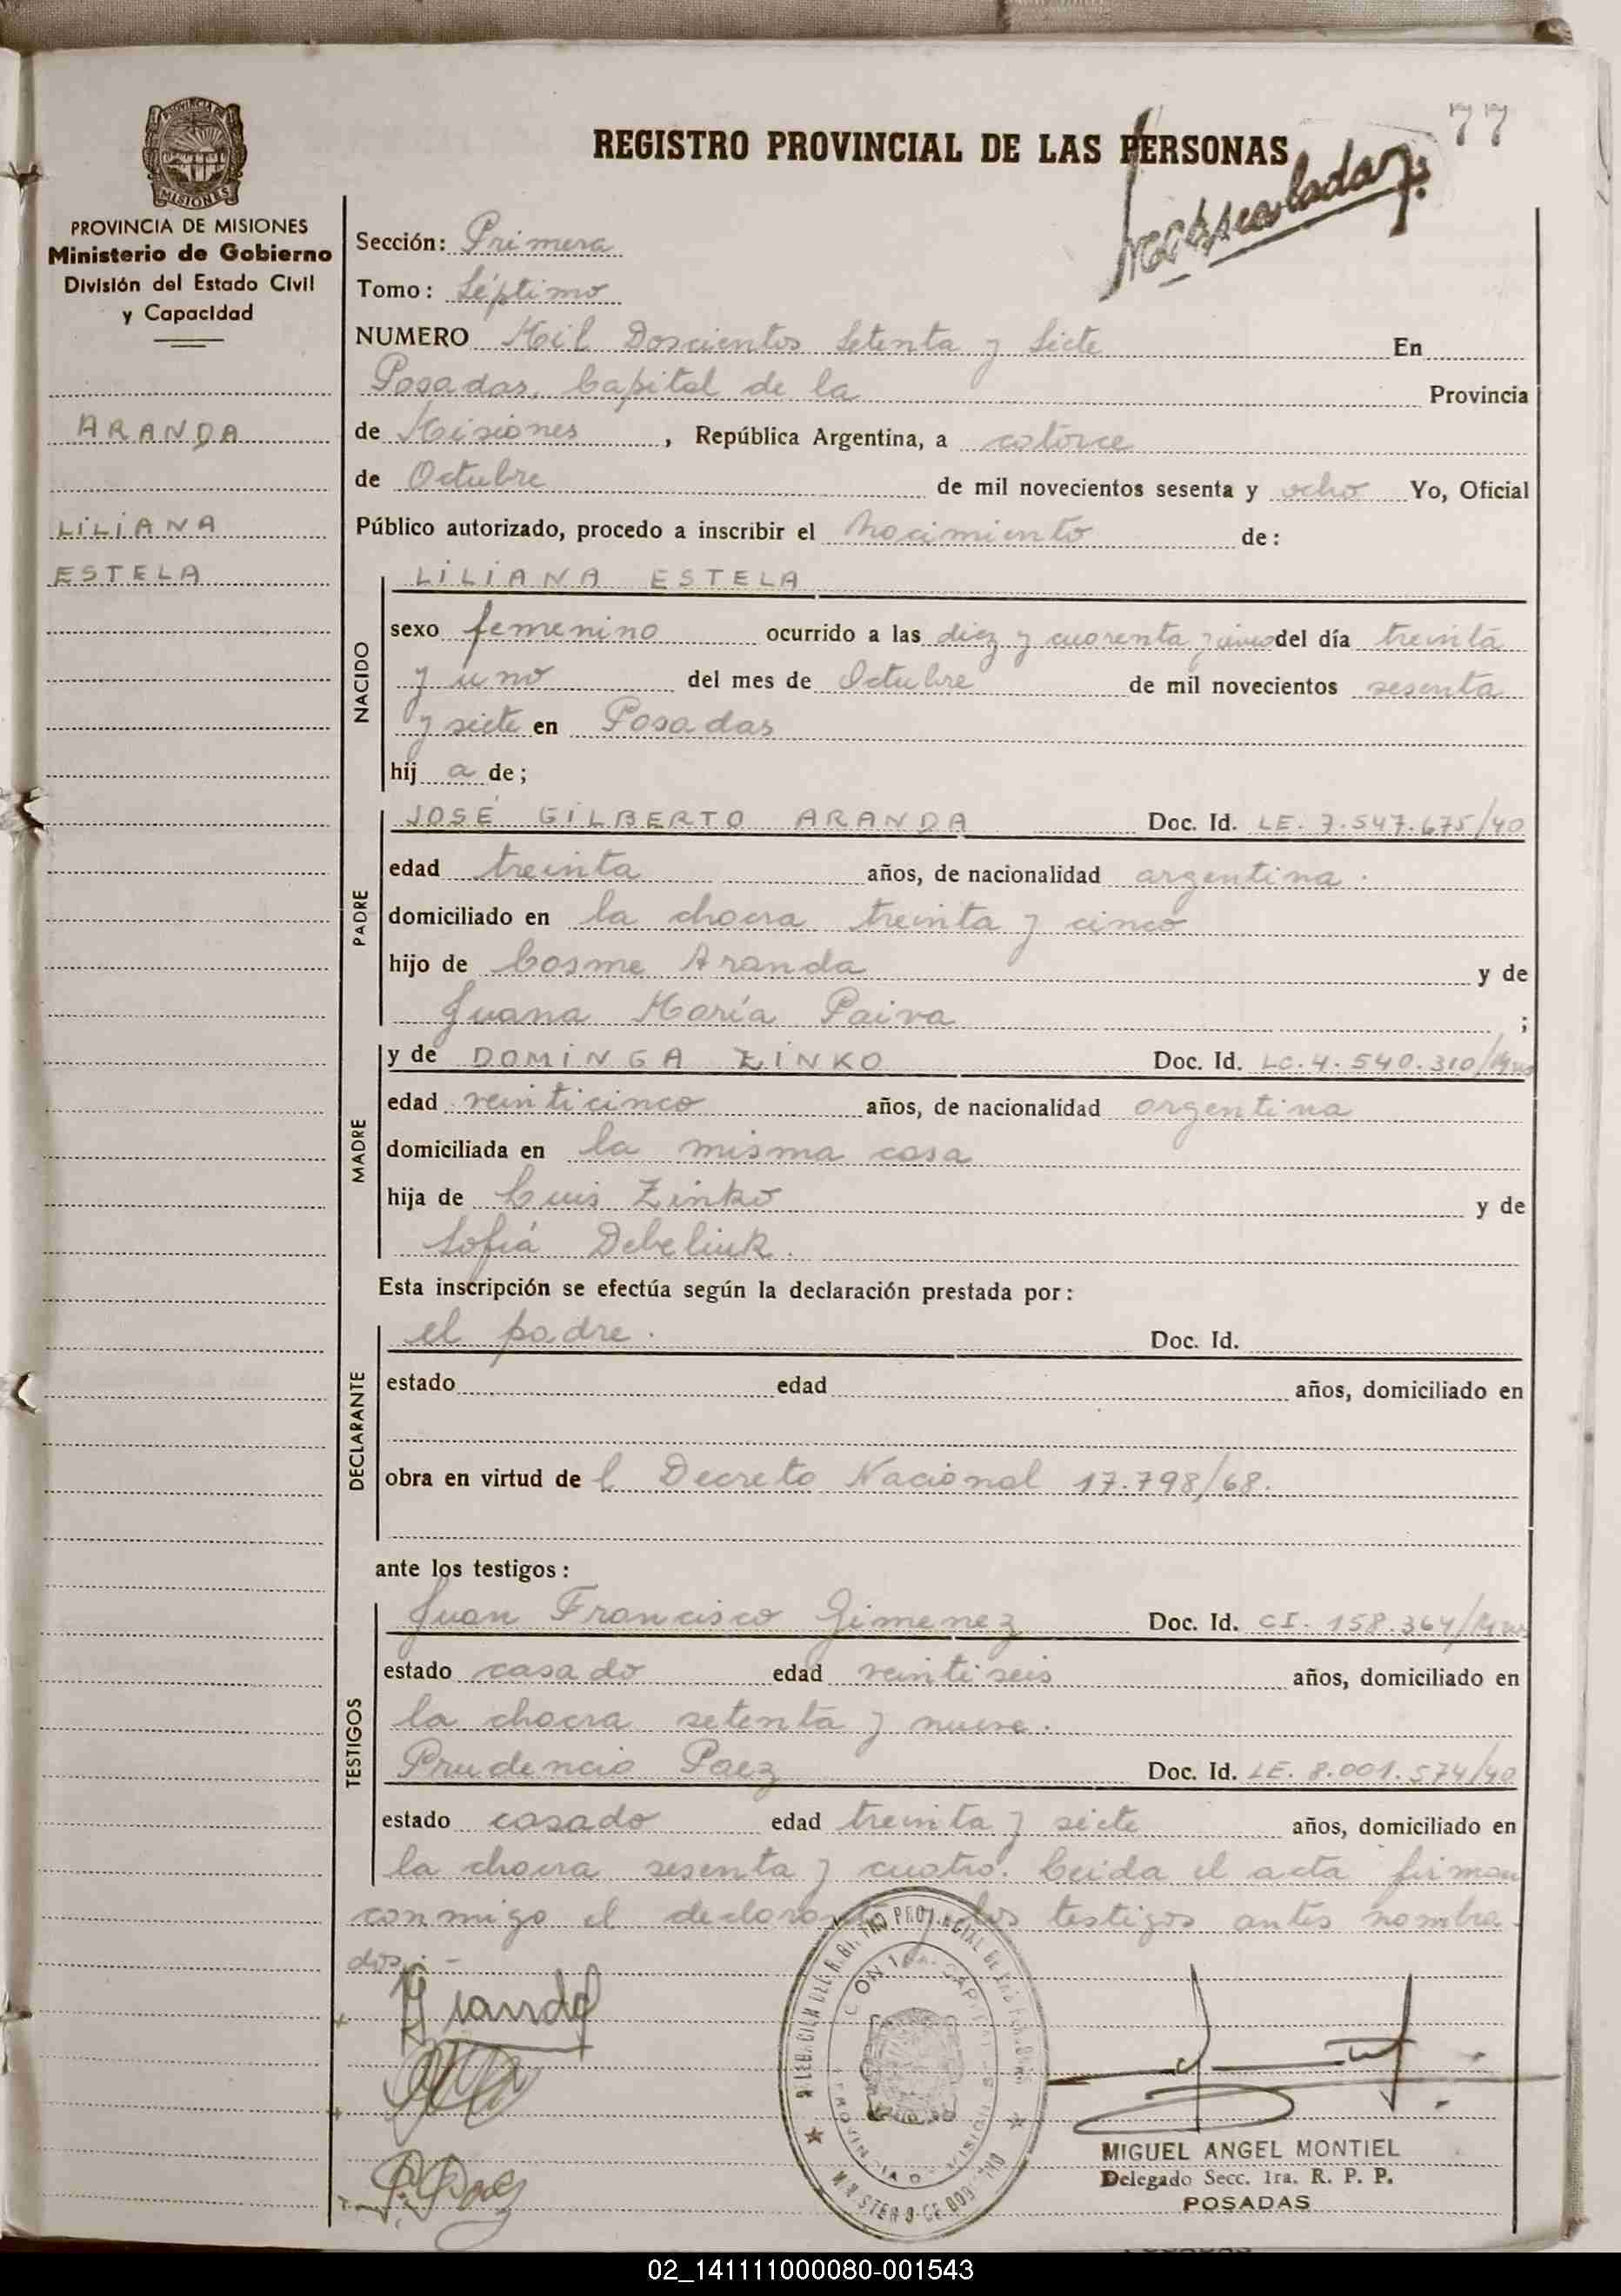 77
REGISTRO PROVINCIAL DE LAS PERSONAS
PROVINCIA DE MISIONES
Ministerio de Gobierno
División del Estado Civil
y Capacidad
ARANDA
LILIANA
ESTELA
Sección: Primera
Tomo: Séptimo
NUMERO Mil Doscientos Setenta y Siete En
Posadas, Capital de la Provincia
de Misiones, República Argentina, a catorce
de Octubre de mil novecientos sesenta y ocho Yo, Oficial
Público autorizado, procedo a inscribir el Nacimiento de:
NACIDO
LILIANA ESTELA
sexo femenino ocurrido a las diez y cuarenta y cinco del día treinta
y uno del mes de Octubre de mil novecientos sesenta
y siete en Posadas
hij a de;
PADRE
JOSÉ GILBERTO ARANDA Doc. Id. LE. 7.547.675/40
edad treinta años, de nacionalidad argentina.
domiciliado en la chacra treinta y cinco
hijo de Cosme Aranda y de
Juana María Paiva ;
MADRE
y de DOMINGA ZINKO Doc. Id. LC. 4.540.310/Mnes
edad veinticinco años, de nacionalidad argentina
domiciliada en la misma casa
hija de Luis Zinko y de
Sofía Debeliuk.
Esta inscripción se efectúa según la declaración prestada por:
DECLARANTE
el padre. Doc. Id.
estado edad años, domiciliado en
obra en virtud de l Decreto Nacional 17.798/68.
ante los testigos:
TESTIGOS
Juan Francisco Gimenez Doc. Id. CI. 158.364/Mnes
estado casado edad veintiseis años, domiciliado en
la chacra setenta y nueve.
Prudencio Paez Doc. Id. LE. 8.001.574/40
estado casado edad treinta y siete años, domiciliado en
la chacra sesenta y cuatro. Leida el acta firman
conmigo el declarante y los testigos antes nombra-
dos.-
MIGUEL ANGEL MONTIEL
Delegado Secc. 1ra. R. P. P.
POSADAS
02_141111000080-001543